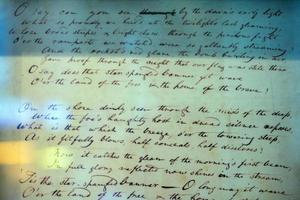 O say can you see by the dawn's early light
What so proudly we hail'd at the twilight's last gleaming,
Whose broad stripes & bright stars through the perilous fight
O'er the ramparts we watch'd, were so gallantly streaming?
And the rocket's red glare, the bombs bursting in air,
Gave proof through the night that our flag was still there
O say does that star-spangled banner yet wave
O'er the land of the free & the home of the brave?
On the shore dimly seen through the mists of the deep,
Where the foe's haughty host in dread silence reposes,
What is that which the breeze, o'er the towering steep,
As it fitfully blows, half conceals, half discloses?
Now it catches the gleam of the morning's first beam,
In full glory reflected now shines in the stream,
'Tis the star-spangled banner — O long may it wave
O'er the land of the free & the home